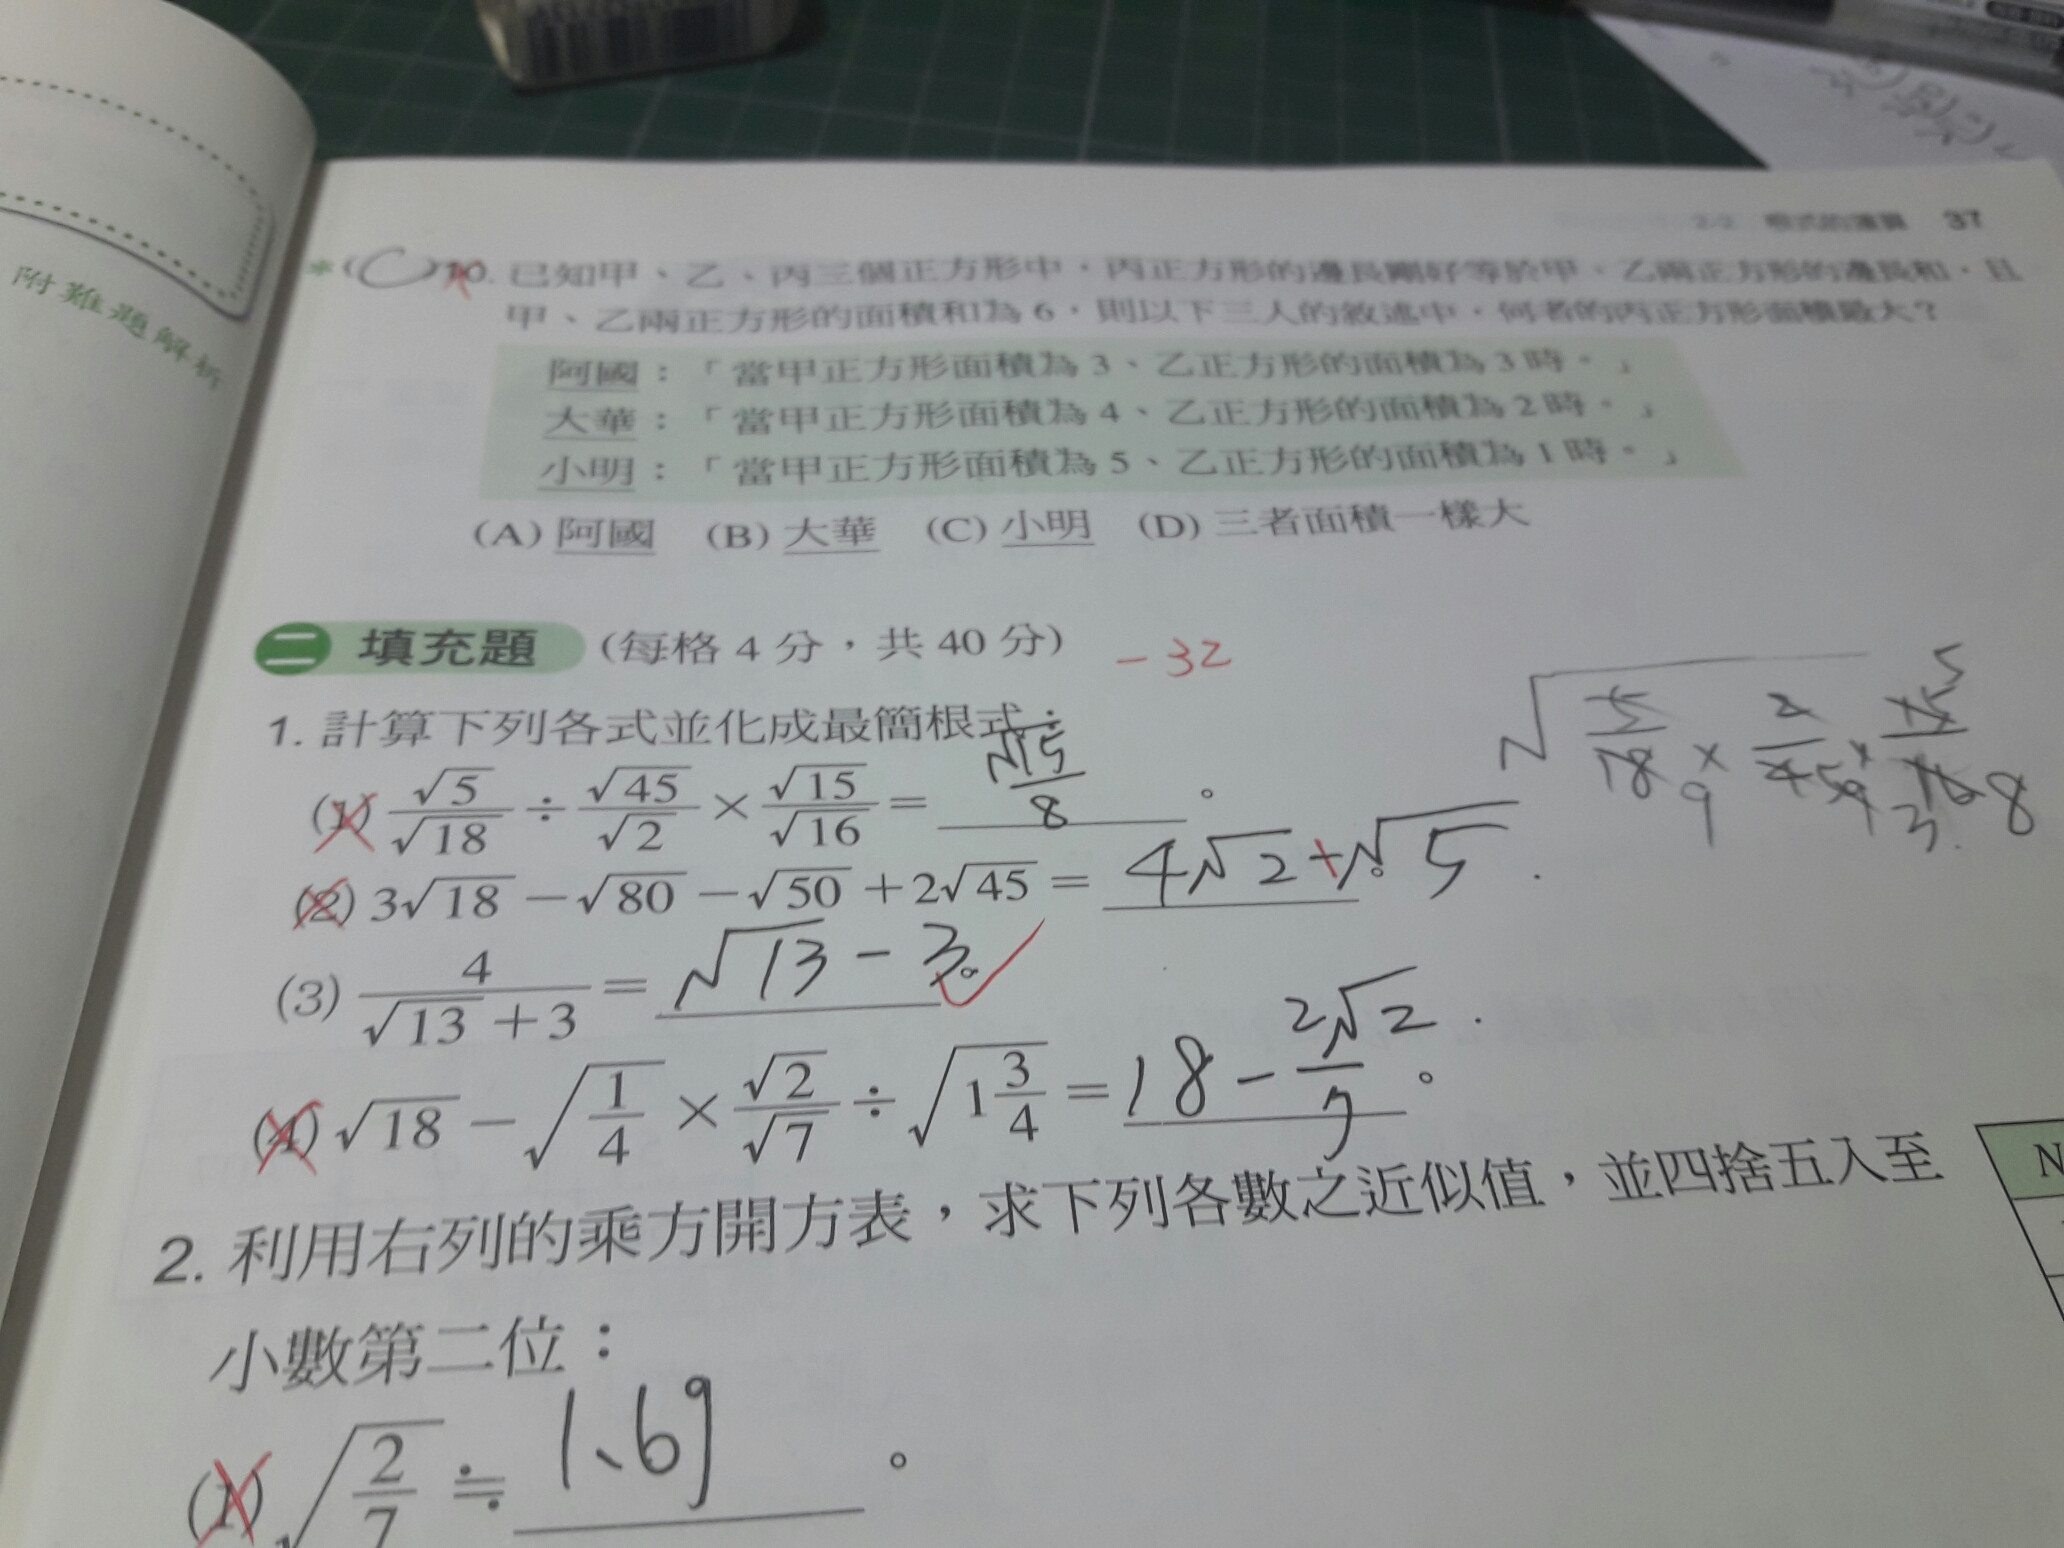 2-2 根式的運算 37
附難題解析
*(C)10. 已知甲、乙、丙三個正方形中，丙正方形的邊長剛好等於甲、乙兩正方形的邊長和，且
甲、乙兩正方形的面積和為 6，則以下三人的敘述中，何者的丙正方形面積最大？
阿國：「當甲正方形面積為 3、乙正方形的面積為 3 時。」
大華：「當甲正方形面積為 4、乙正方形的面積為 2 時。」
小明：「當甲正方形面積為 5、乙正方形的面積為 1 時。」
(A) 阿國 (B) 大華 (C) 小明 (D) 三者面積一樣大
二 填充題 (每格 4 分，共 40 分) -32
1. 計算下列各式並化成最簡根式：
(1) √5/√18 ÷ √45/√2 × √15/√16 = √15/8 。
(2) 3√18 − √80 − √50 + 2√45 = 4√2+√5 。
(3) 4/(√13+3) = √13 − 3 。
(4) √18 − √(1/4) × √2/√7 ÷ √(1 3/4) = 18 − 2√2/7 。
2. 利用右列的乘方開方表，求下列各數之近似值，並四捨五入至
小數第二位：
N
(1) √(2/7) ≒ 1.69 。